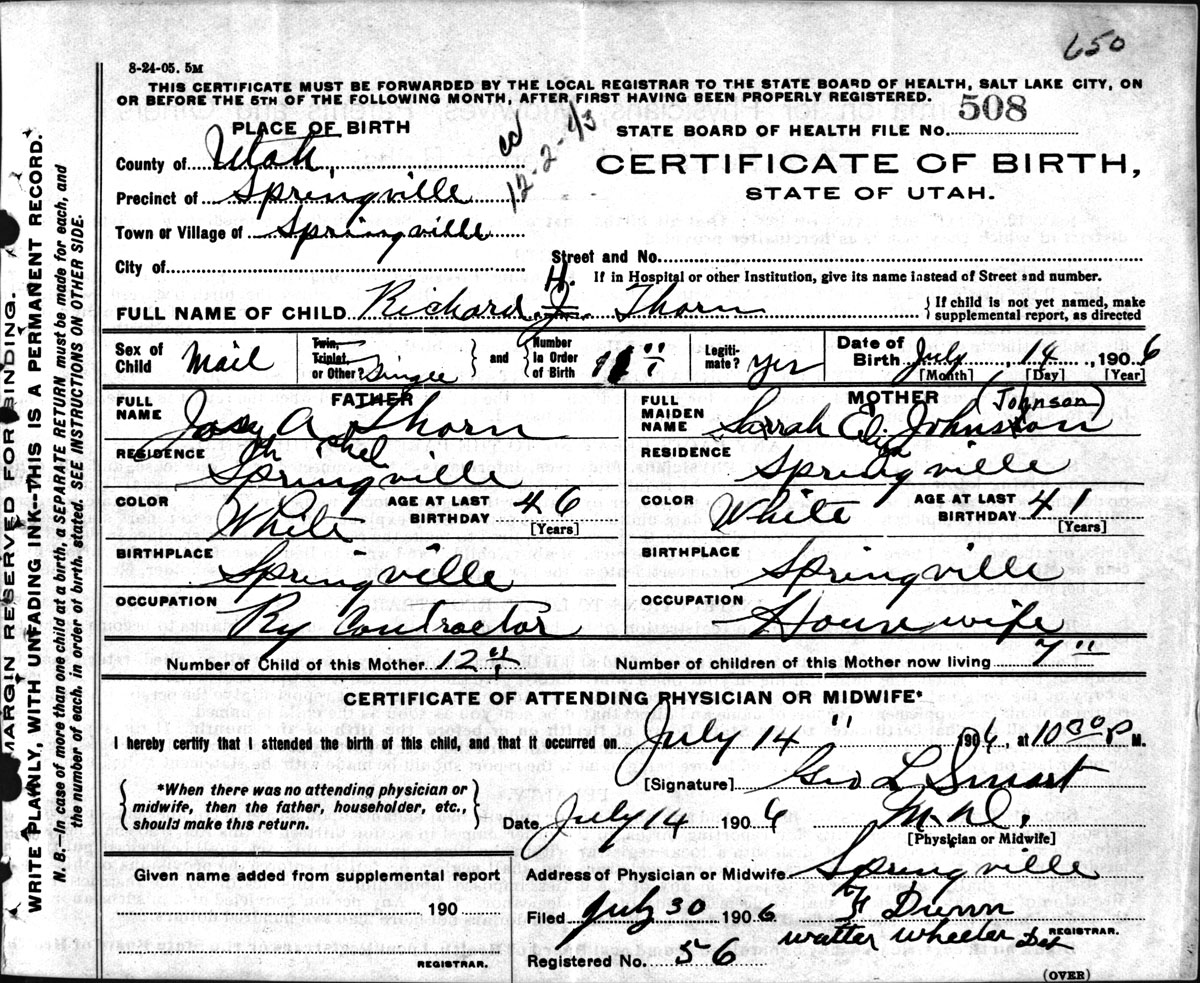 650
8-24-05. 5M
THIS CERTIFICATE MUST BE FORWARDED BY THE LOCAL REGISTRAR TO THE STATE BOARD OF HEALTH, SALT LAKE CITY, ON
OR BEFORE THE 5TH OF THE FOLLOWING MONTH, AFTER FIRST HAVING BEEN PROPERLY REGISTERED.
MARGIN RESERVED FOR BINDING.
WRITE PLAINLY, WITH UNFADING INK—THIS IS A PERMANENT RECORD.
N. B.—In case of more than one child at a birth, a SEPARATE RETURN must be made for each, and
the number of each, in order of birth, stated. SEE INSTRUCTIONS ON OTHER SIDE.
PLACE OF BIRTH
cd
12-2-43
STATE BOARD OF HEALTH FILE NO. 508
County of Utah
CERTIFICATE OF BIRTH,
STATE OF UTAH.
Precinct of Springville
Town or Village of Springville
City of
Street and No.
If in Hospital or other Institution, give its name instead of Street and number.
H.
FULL NAME OF CHILD Richard J. Thorn
If child is not yet named, make
supplemental report, as directed
Sex of Child Mail
Twin, Triplet, or Other? Singel
and Number in Order of Birth 11"
Legitimate? yes
Date of Birth July 14, 1906
[Month] [Day] [Year]
FATHER
FULL NAME Josy A Thorn
RESIDENCE Springville
COLOR White AGE AT LAST BIRTHDAY 46
[Years]
BIRTHPLACE Springville
OCCUPATION Ry Contractor
MOTHER (Johnson)
FULL MAIDEN NAME Sarrah Eliza Johnston
RESIDENCE Springville
COLOR White AGE AT LAST BIRTHDAY 41
[Years]
BIRTHPLACE Springville
OCCUPATION Housewife
Number of Child of this Mother 12" Number of children of this Mother now living 7"
CERTIFICATE OF ATTENDING PHYSICIAN OR MIDWIFE*
I hereby certify that I attended the birth of this child, and that it occurred on July 14" 1906, at 10 30 P M.
*When there was no attending physician or
midwife, then the father, householder, etc.,
should make this return.
[Signature] Geo L Smart
Date July 14 1906 M.D.
[Physician or Midwife]
Given name added from supplemental report
190
REGISTRAR.
Address of Physician or Midwife Springville
Filed July 30 1906 F Dunn
REGISTRAR.
Walter Wheeler Dep
Registered No. 56
(OVER)